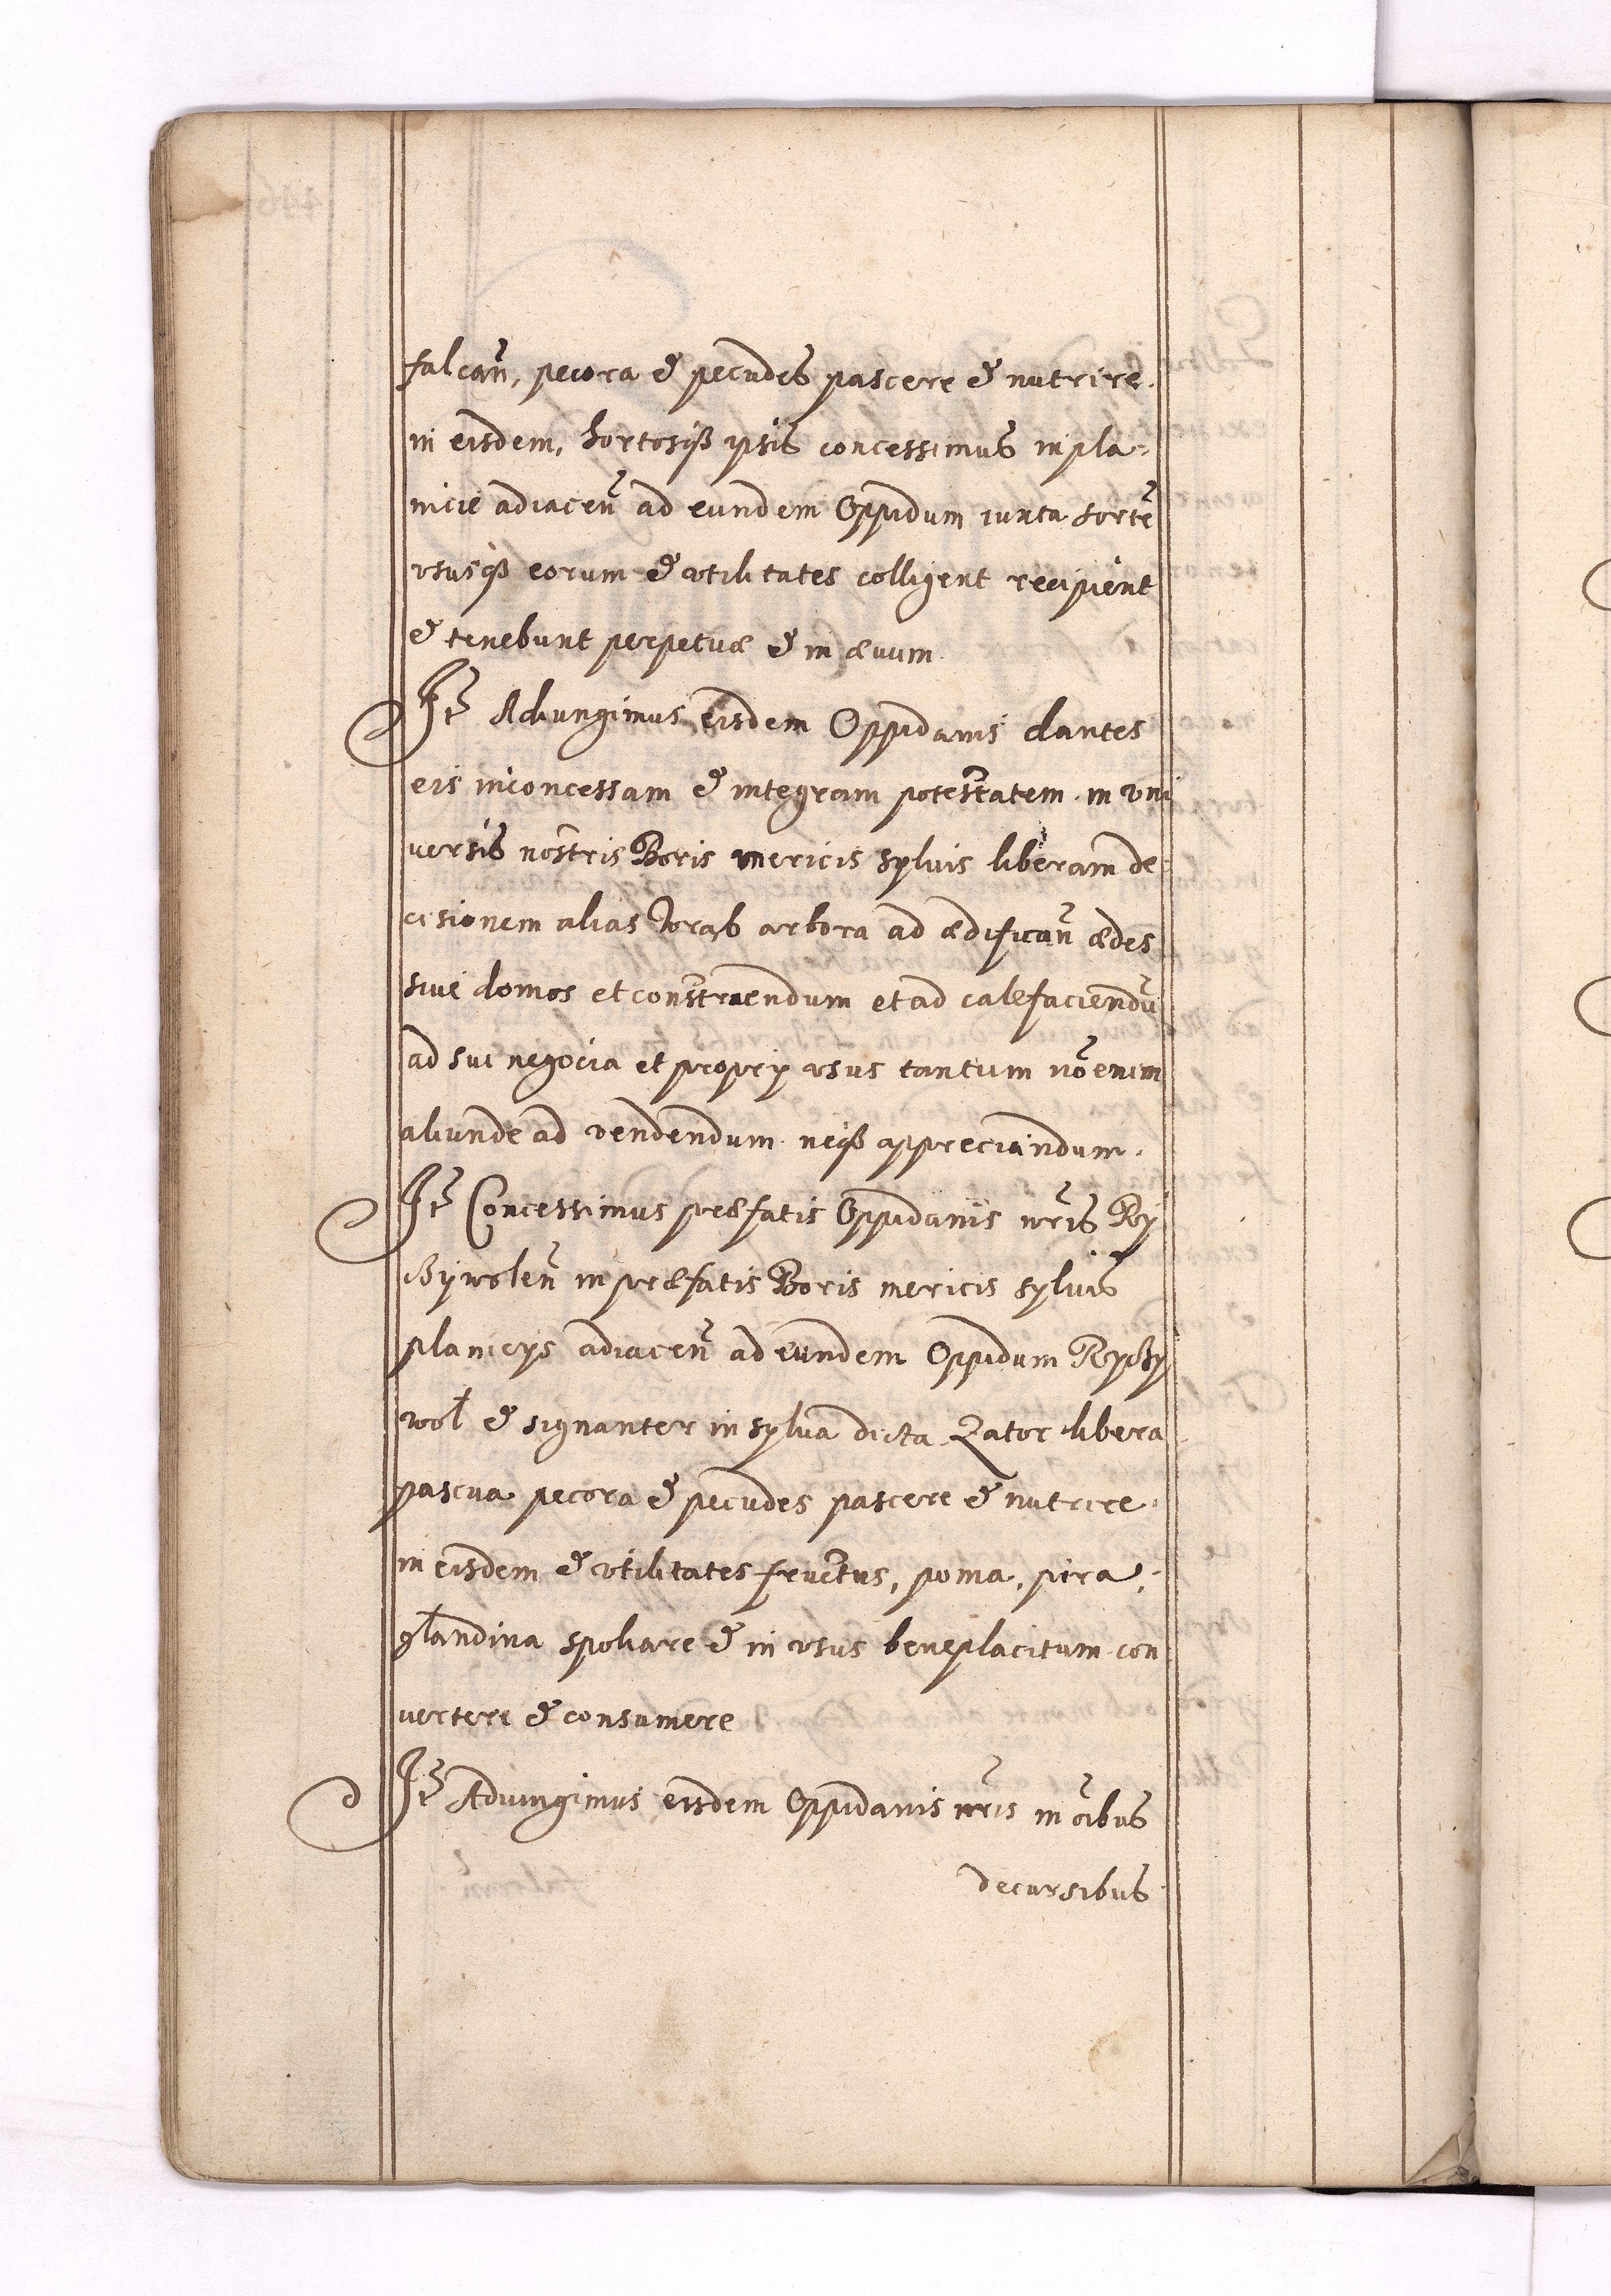 falcan̄, pecora & pecudes pascere & nutrire
in eisdem, hortosqȝ ipsis concessimus in pla-
nicie adiacen̄ ad eundem Oppidum iuxta sortē
vsusqȝ eorum & vtilitates colligent recipient
& tenebunt perpetuæ & in æuum
Itē Adiungimus eisdem Oppidanis dantes
eis inconcessam & integram potestatem in vni
versis nostris Boris mericis syluis liberam de
cisionem alias Porąb arbora ad ædifican̄ ædes
siue domos et construendum et ad calefaciendū
ad sui negocia et proprij vsus tantum nō enim
aliunde ad vendendum neqȝ appreciandum.
Itē Concessimus præfatis Oppidanis nr̄is Ry
chywolen̄ in præfatis Boris mericis syluis
planicijs adiacen̄ ad eundem Oppidum Rychy
woł & signanter in sylua dicta Zator libera
pascua pecora & pecudes pascere & nutrire
in eisdem & vtilitates fructus, poma, pira,
glandina spoliare & in vsus beneplacitum con
uertere & consumere
Itē Adiungimus eisdem Oppidanis nr̄is in oībus
decursibus